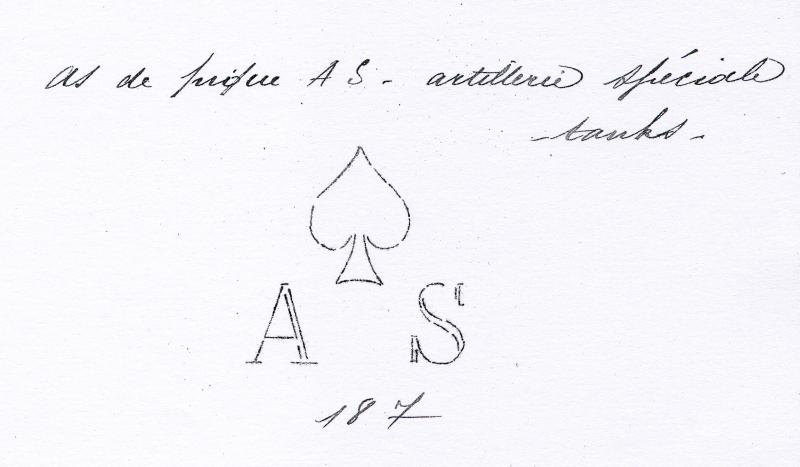 as de pique A S - artillerie spéciale
- tanks -
A S
187